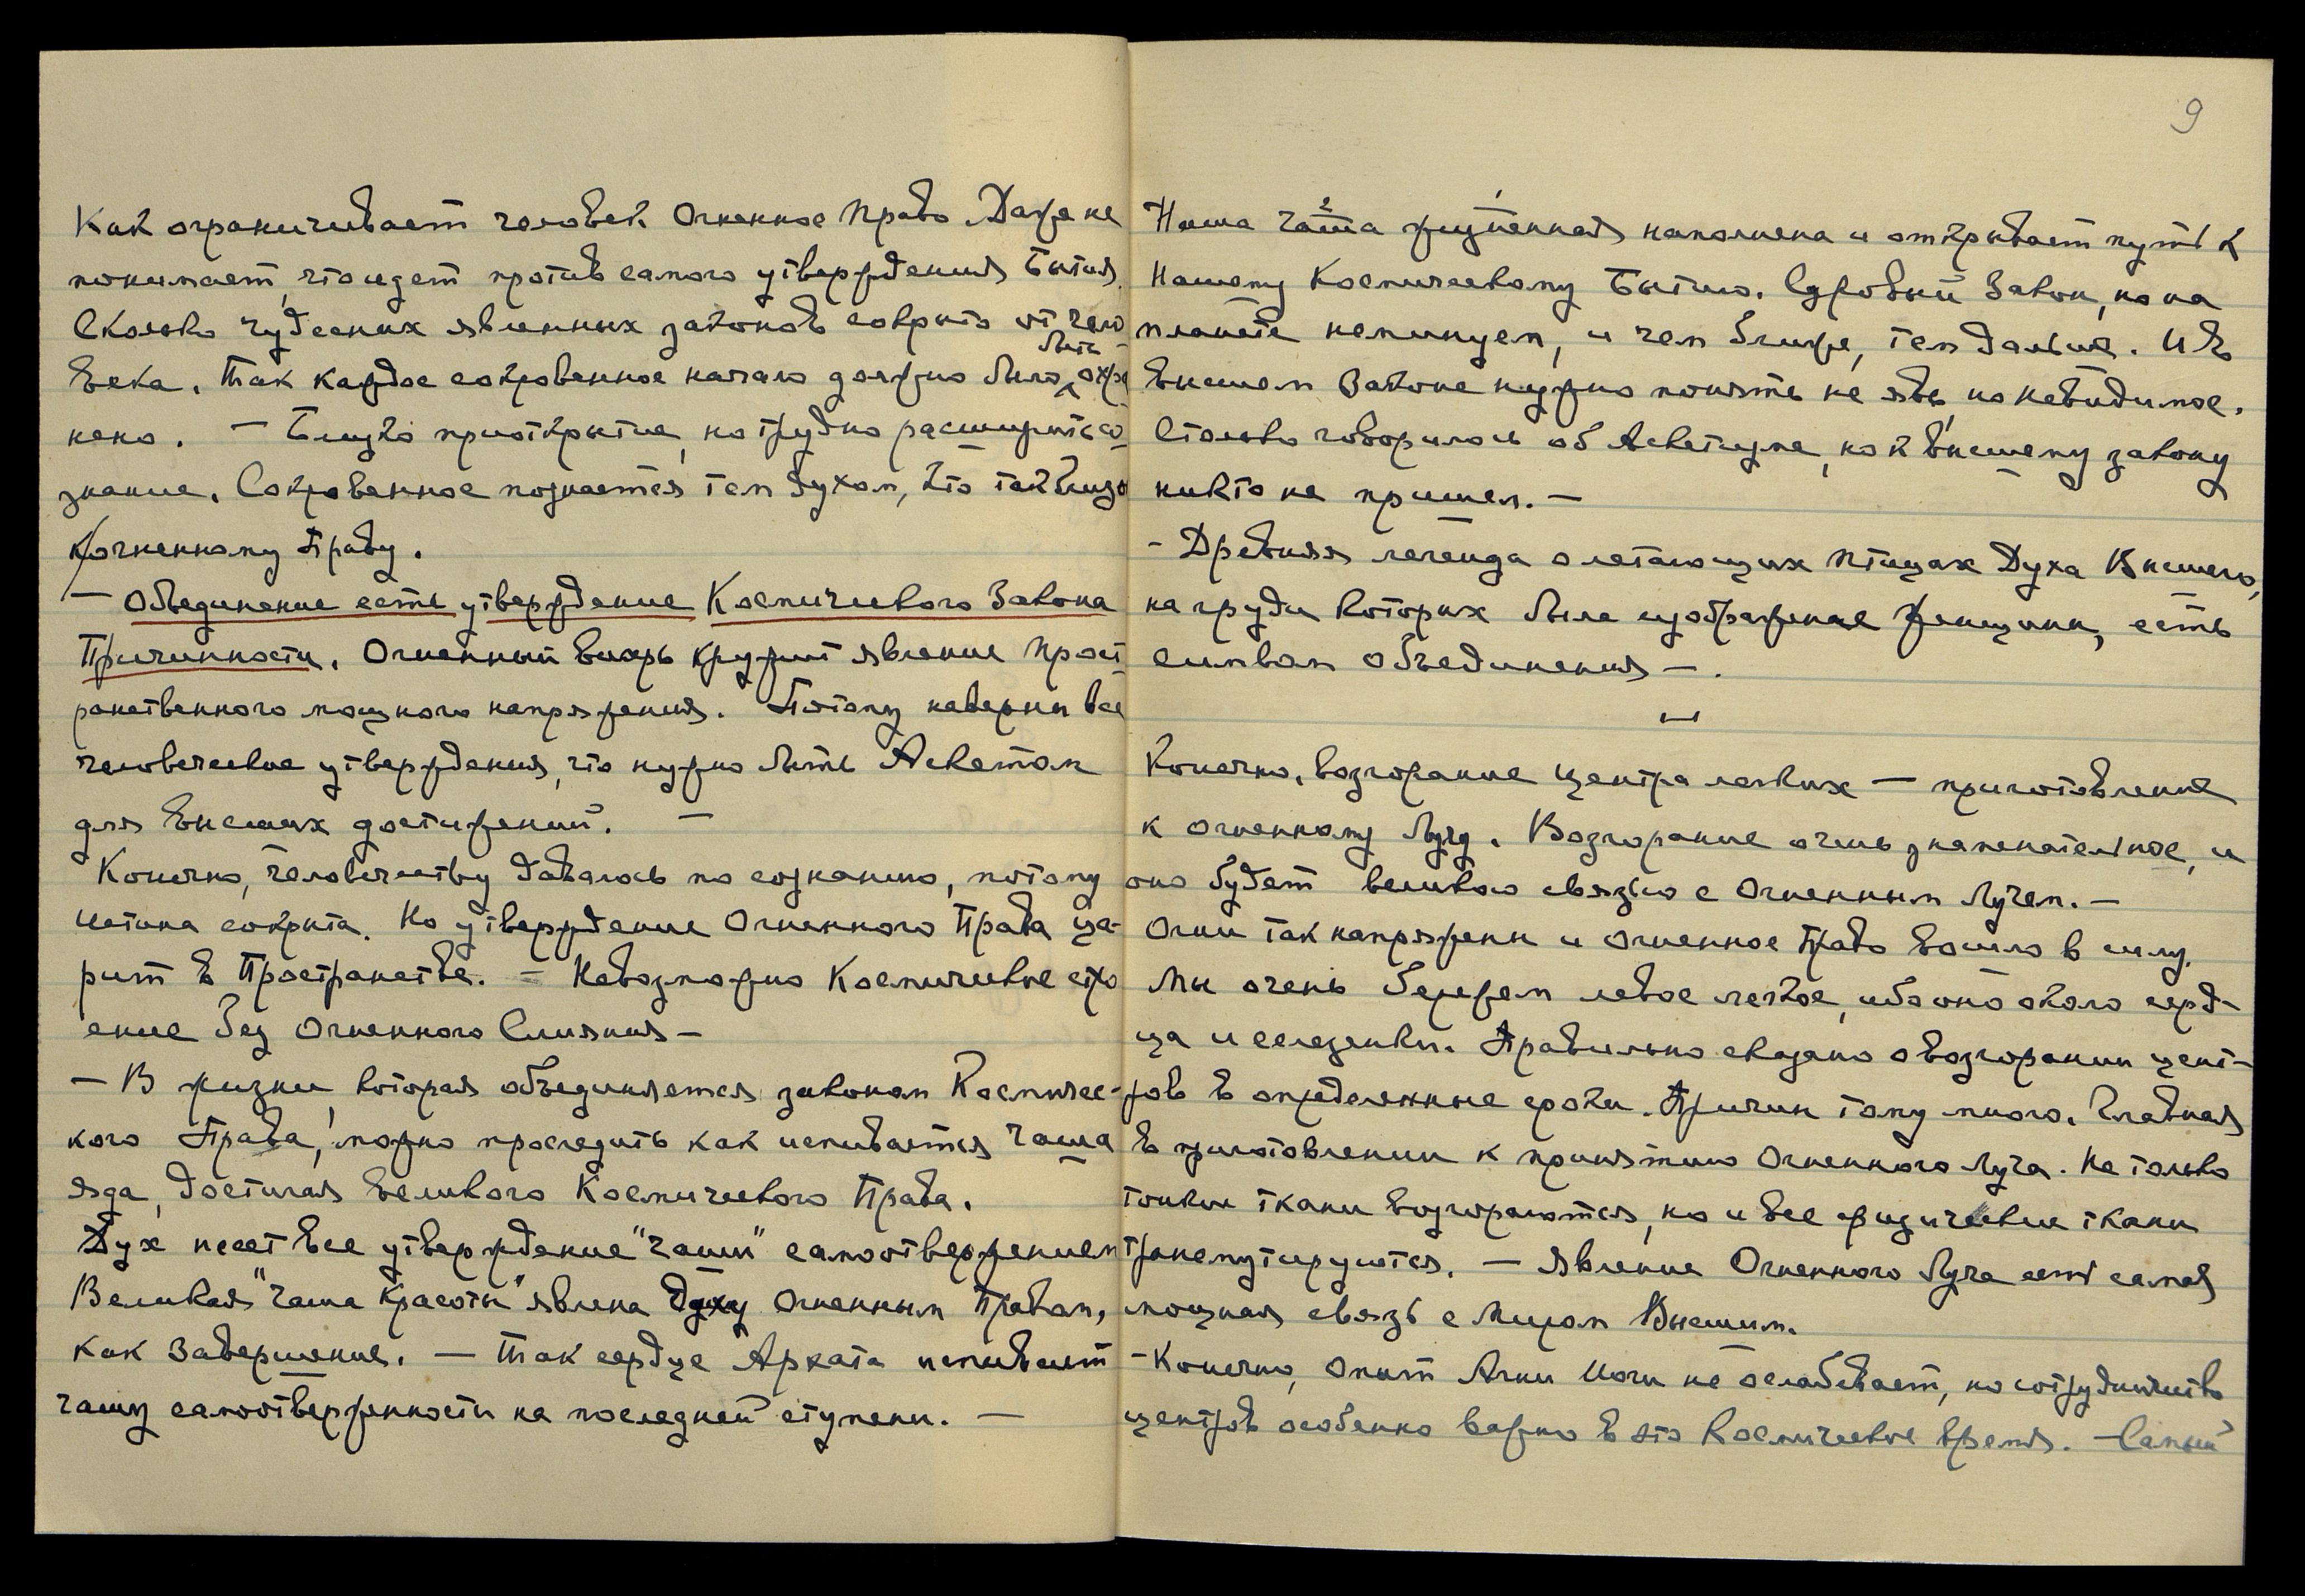 Как ограничивает человек Огненное Право. Даже не
понимает, что идет против самого утверждения Бытия.
Сколько чудесных явленных законов сокрыто от чело-
века. Так каждое сокровенное начало должно было быть охра
нено. — Близко приоткрытие, но трудно расширить со-
знание. Сокровенное познается тем духом, кто так близок
к огненному Праву.
— Объединение есть утверждение Космического Закона
Причинности. Огненный вихрь кружит явление прост
ранственного мощного напряжения. Потому неверны все
человеческие утверждения, что нужно быть Аскетом
для высших достижений. —
Конечно, человечеству давалось по сознанию, потому
истина сокрыта. Но утверждение Огненного Права ца-
рит в Пространстве. — Невозможно Космическое стро
ение без Огненного Слияния —
— В жизни, которая объединяется законом Космичес-
кого Права, можно проследить как испивается чаша
яда, достигая Великого Космического Права.
Дух несет все утверждение "чаши" самоотвержением
Великая "Чаша Красоты" явлена духу Огненным Правом,
как Завершение. — Так сердце Архата испивает
чашу самоотверженности на последней ступени. —
9
Наша чаша жизненная наполнена и открывает путь к
Нашему Космическому Бытию. Суровый Закон, но на
планете неминуем, и чем ближе, тем дальше. И в
высшем Законе нужно понять не явь, но невидимое.
Столько говорилось об Аскетизме, но к высшему закону
никто не пришел. —
- Древняя легенда о летающих птицах Духа Высшего,
на груди которых было изображение женщины, есть
символ объединения —.
—
Конечно, возгорание центра легких — приготовление
к огненному Лучу. Возгорание очень знаменательное, и
оно будет великою связью с Огненным Лучем. —
Огни так напряжены и огненное Право вошло в силу.
Мы очень бережем левое легкое, ибо оно около серд-
ца и селезенки. Правильно сказано о возгорании цент-
ров в определенные сроки. Причин тому много. Главная
в приготовлении к принятию Огненного Луча. Не только
тонкие ткани возгораются, но и все физические ткани
трансмутируются. — Явление Огненного Луча есть самая
мощная связь с Миром Высшим.
- Конечно, опыт Агни Йоги не ослабевает, но сотрудничество
центров особенно важно в это Космическое время. — Самый